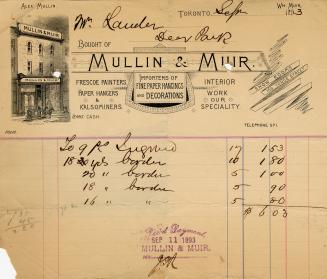 ALEX. MULLIN
WM. MUIR.
TORONTO, Sep 1893
Mr. Lauder
Deer Park
BOUGHT OF
MULLIN & MUIR.
MULLIN & MUIR
FRESCOE PAINTERS,
PAPER HANGERS
& KALSOMINERS.
IMPORTERS OF
FINE PAPER HANGINGS
AND DECORATIONS
INTERIOR
WORK OUR
SPECIALITY.
TERMS CASH.
TELEPHONE
To 9 ps Ingrind 17 1 53
18 yds border 10 1 80
20 " border 5 1 00
18 " border 5 90
16 " " 5 80
$ 6 03
SEP 11 1893
MULLIN & MUIR.